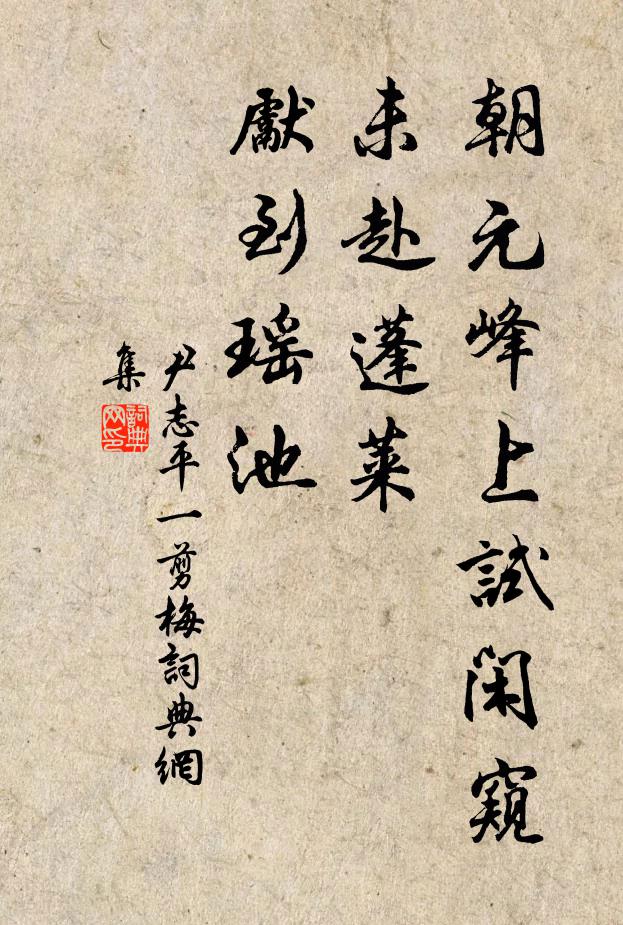 朝元峰上試閑窺
未赴蓬萊
獻到瑤池
尹志平一剪梅詞典網
集
詞典網印